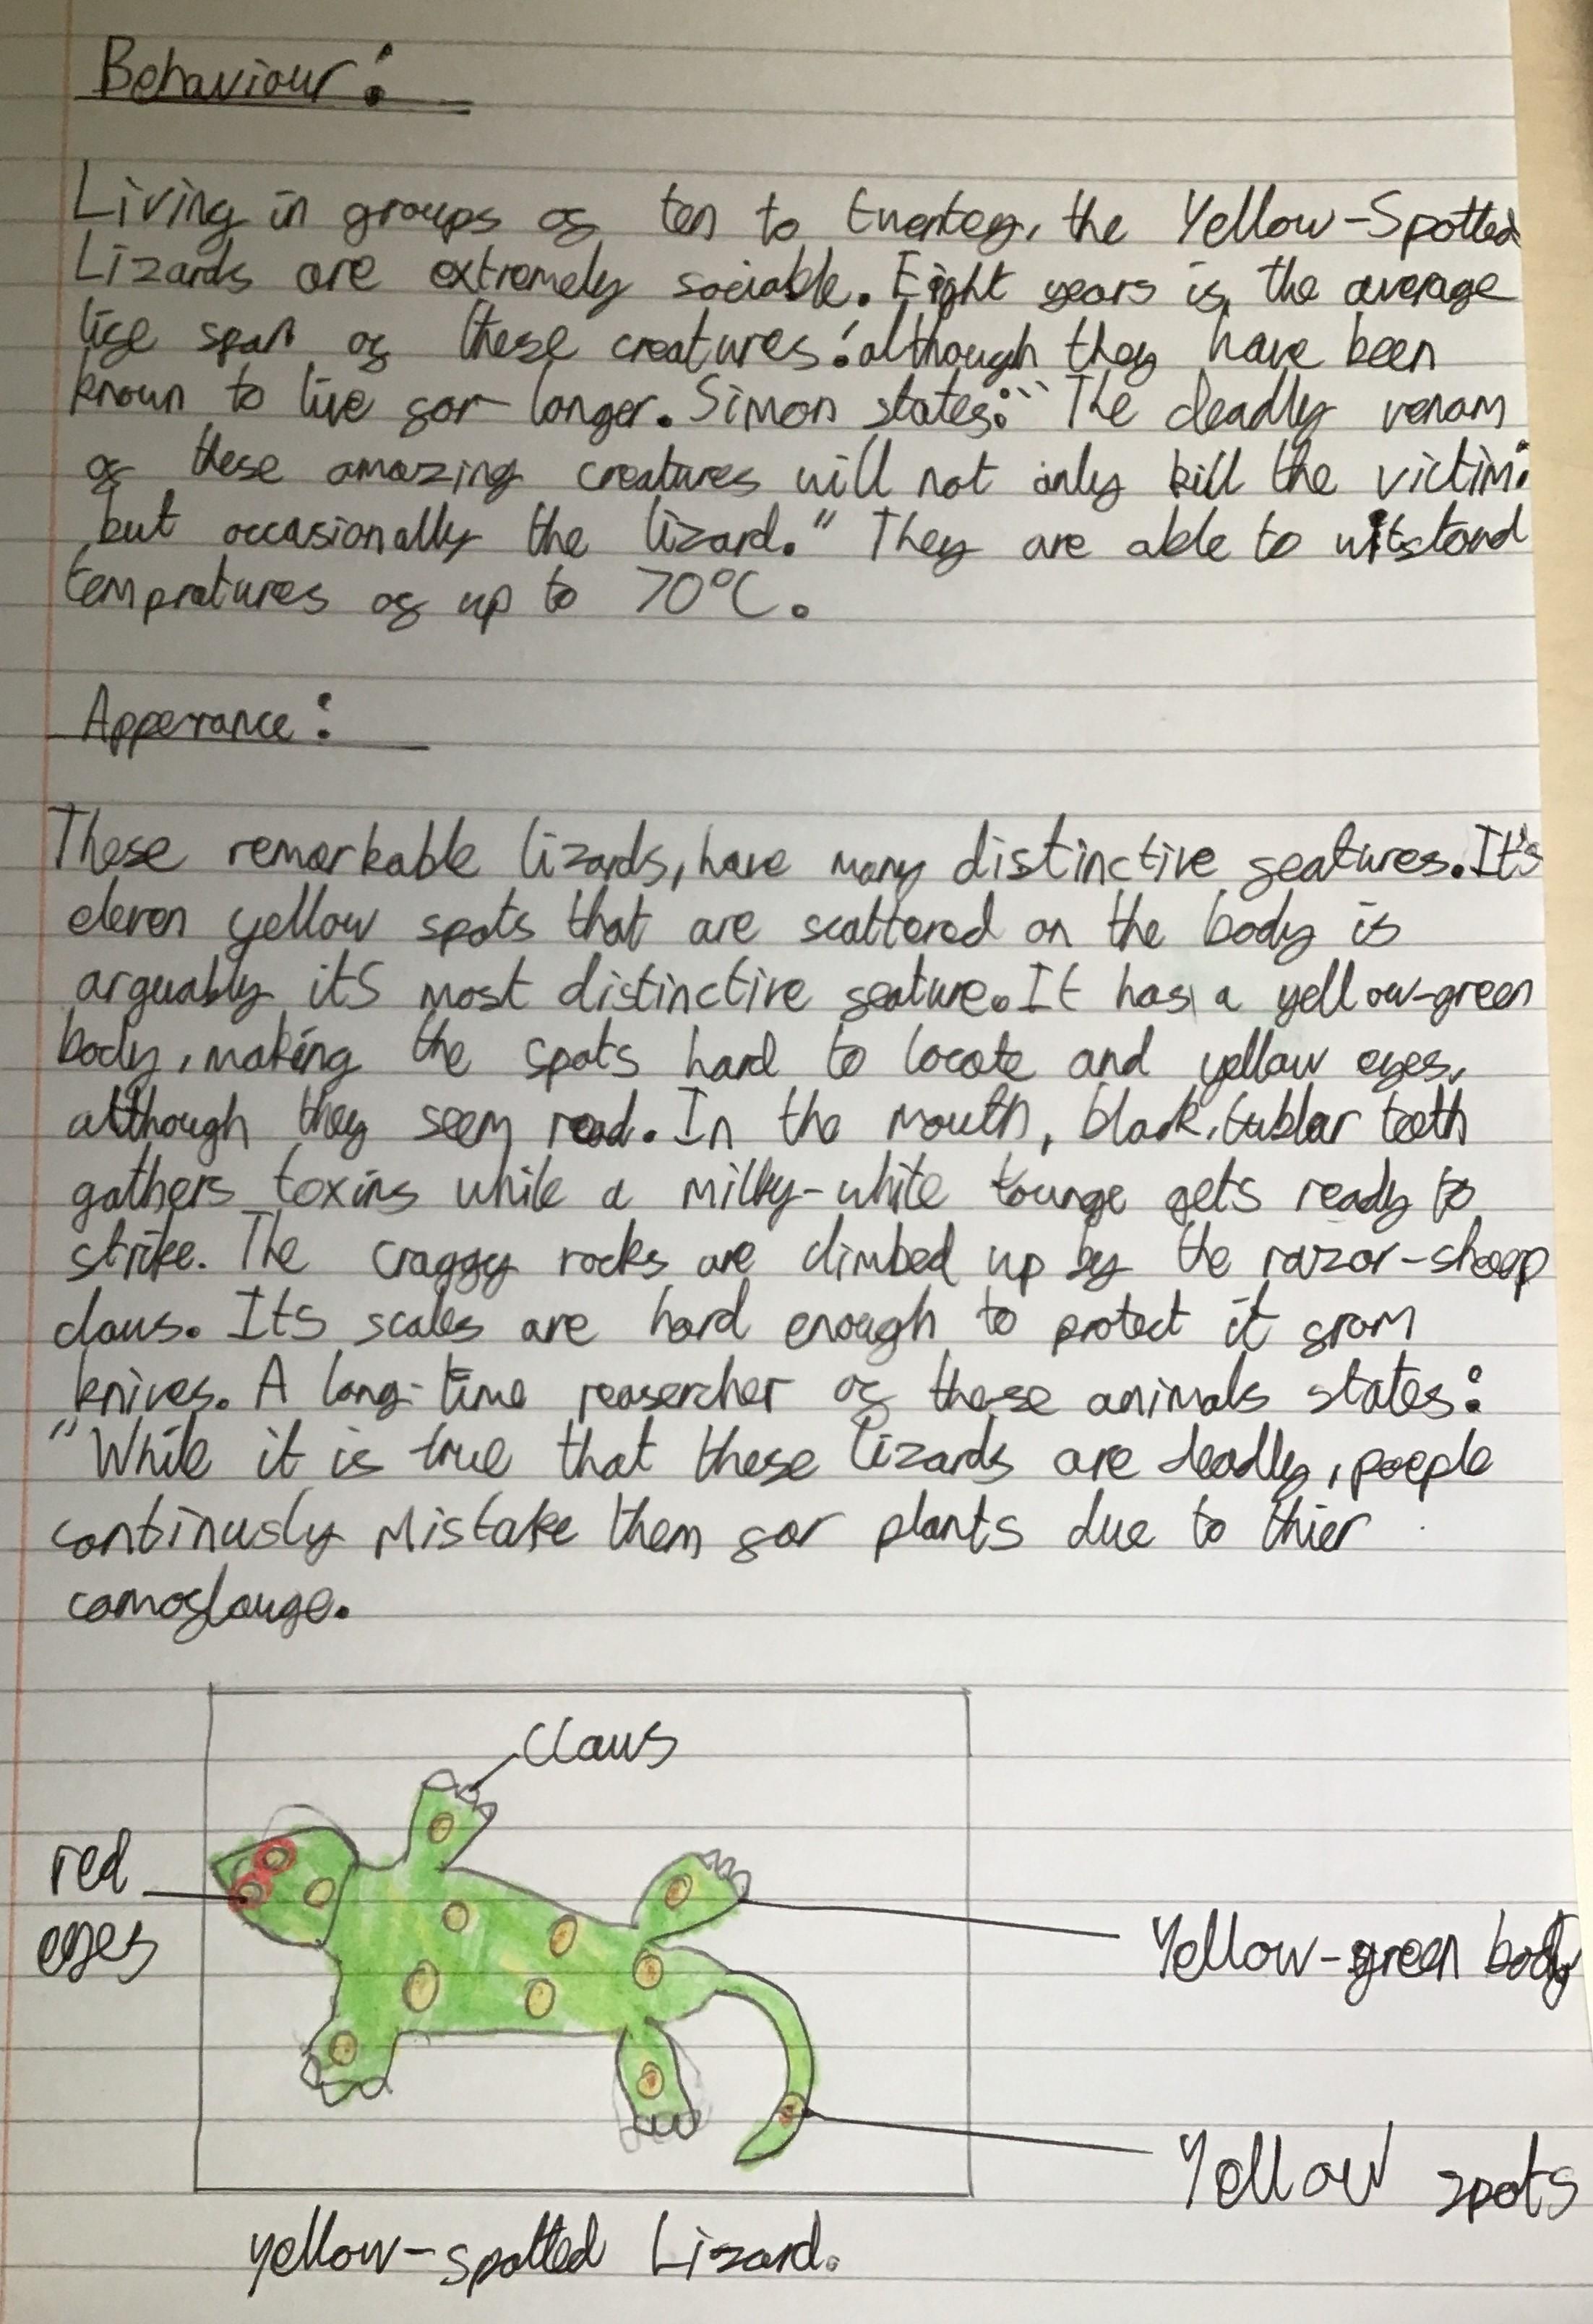 Behaviour:
Living in groups of ten to twentey, the Yellow-Spotted
Lizards are extremely sociable. Eight years is the average
life span of these creatures: although they have been
known to live far longer. Simon states: "The deadly venom
of these amazing creatures will not only kill the victim:
but occasionally the lizard." They are able to witstand
tempratures of up to 70°C.
Apperrance:
These remarkable lizards, have many distinctive features. It's
eleven yellow spots that are scattered on the body is
arguably its most distinctive feature. It has a yellow-green
body, making the spots hard to locate and yellow eyes,
although they seem read. In the mouth, black, tublar teeth
gathers toxins while a milky-white tounge gets ready to
strike. The craggy rocks are climbed up by the razor-sharp
claws. Its scales are hard enough to protect it from
knives. A long-time reasercher of these animals states:
"While it is true that these lizards are deadly, poeple
continusly mistake them for plants due to thier
camoflauge.
claws
red
eyes
Yellow-green body
Yellow spots
yellow-spotted Lizard.